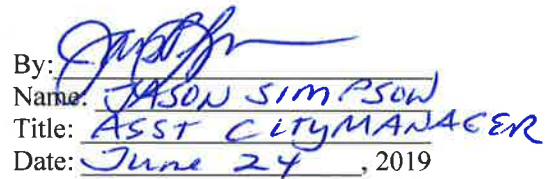 By:
Name: JASON SIMPSON
Title: ASST CITYMANAGER
Date: June 24, 2019